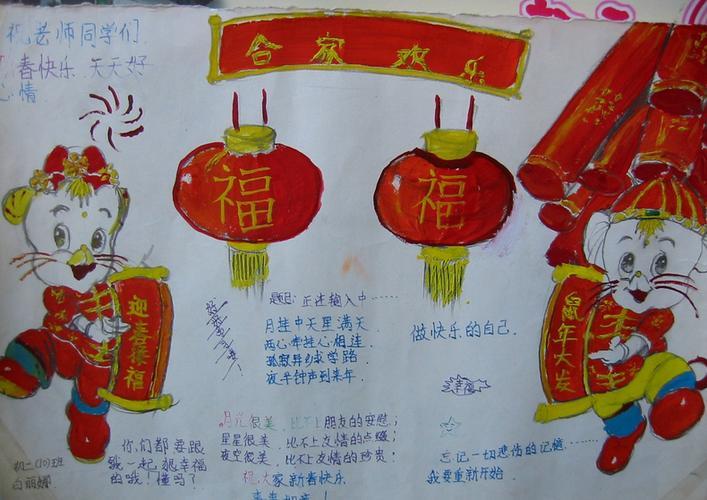 祝老师同学们
春快乐.天天好
心情.
合家欢乐
福
福
迎春接福
鼠年大发
题记:正在输入中……
月挂中天星满天
两心牵挂心相连.
孤寂异乡求学路.
夜半钟声到来年.
做快乐的自己.
幸福
月光很美,比不上朋友的安慰;
星星很美,比不上友情的点缀;
夜空很美,比不上友情的珍贵;
祝大家新春快乐
忘记一切悲伤的记忆……
我要重新开始.
你们都要跟
我一起狠幸福
的哦!懂吗?
初二(10)班
白丽娜